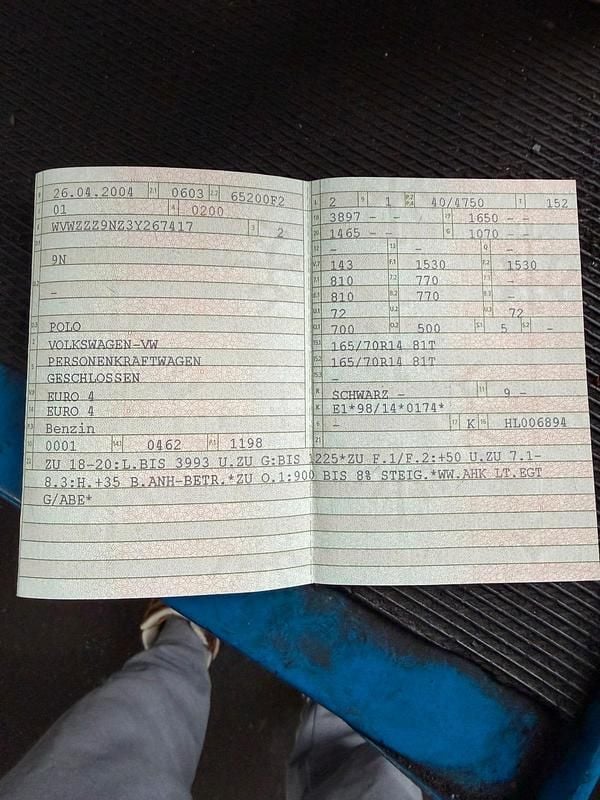 26.04.2004 0603 65200F2
01 0200
WVWZZZ9NZ3Y267417 2
9N
-
POLO
VOLKSWAGEN-VW
PERSONENKRAFTWAGEN
GESCHLOSSEN
EURO 4
EURO 4
Benzin
0001 0462 1198
2 1 40/4750 152
3897 - - 1650 - -
1465 - - 1070 - -
- - -
143 1530 1530
810 770 -
810 770 -
72 - 72
700 500 5 -
165/70R14 81T
165/70R14 81T
-
SCHWARZ - 9 -
E1*98/14*0174*
- K HL006894
ZU 18-20:L.BIS 3993 U.ZU G:BIS 1225*ZU F.1/F.2:+50 U.ZU 7.1-
8.3:H.+35 B.ANH-BETR.*ZU O.1:900 BIS 8% STEIG.*WW.AHK LT.EGT
G/ABE*